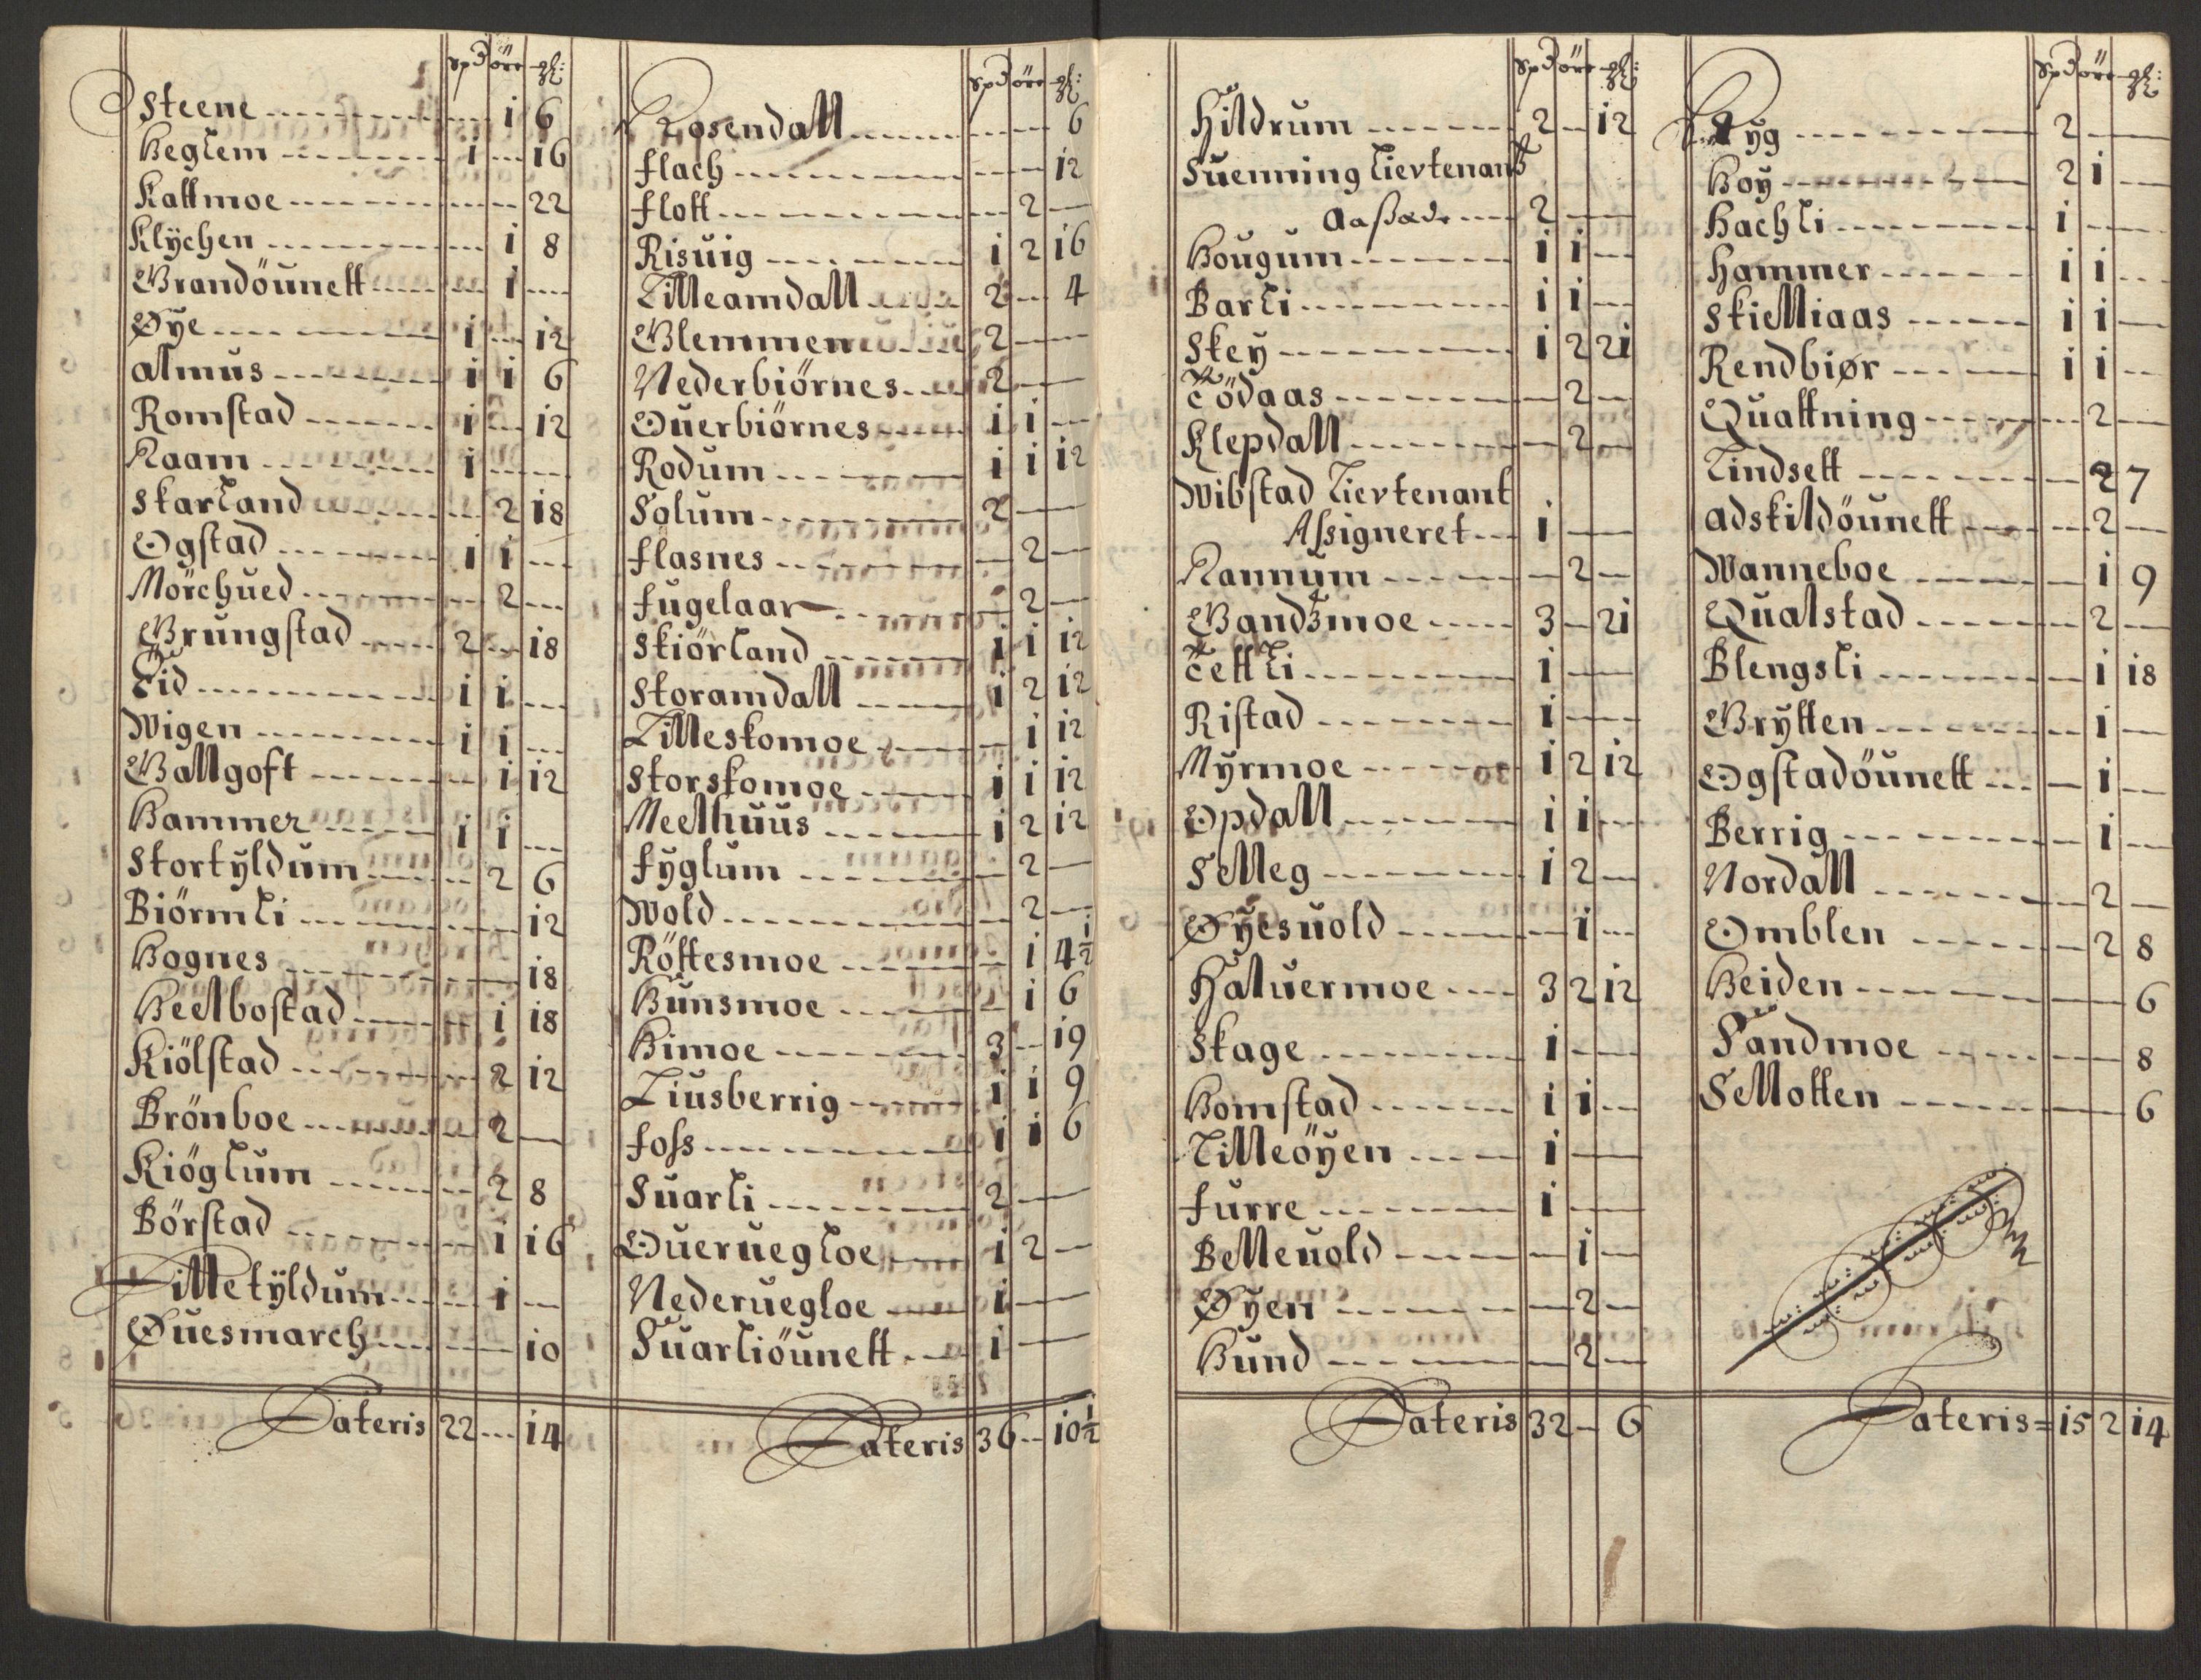 spd öre gl:
Steene 1 6
Heglem 1 16
Kattmoe 22
Klÿchen 1 8
Grandöunett 1
Øÿe 1 12
Almus 1 1 6
Romstad 1 12
Raam 1
Skarland 2 18
Ogstad 1 1
Mörchued 2
Grungstad 2 18
Eid 1 1
Wigen 1 1
Gallgoft 1 12
Hammer 1 1
Stortÿldum 2 6
Biörmli 12
Hognes 18
Heelbostad 1 18
Kiölstad 2 12
Brönboe 2
Kiöglum 2 8
Börstad 1 16
Lilletÿldum 1
Øuesmarch 10
Lateris 22 14
spd öre gl:
Rosendall 6
Flach 12
Flott 2
Risuig 1 2 16
Lilleamdall 2 4
Glemmen 2
Nederbiörnes 2
Ouerbiörnes 1 1
Rodum 1 1 12
Solum 2
Flasnes 2
Fugelaar 2
Skiörland 1 1 12
Storamdall 1 2 12
Lilleskomoe 1 12
Storskomoe 1 1 12
Meelhuus 1 2 12
Fÿglum 2
Wold 2
Röttesmoe 1 4½
Hunsmoe 1 6
Himoe 3 19
Liusberrig 1 1 9
Foss 1 1 6
Suarli 2
Oueruegloe 1 2
Nederuegloe 1
Suarliöunett 1
Lateris 36 10½
spd öre gl:
Hildrum 2 12
Suenning Lievtenant
Aassæde 2
Hougum 1 1
Barli 1 1
Skeÿ 1 2 21
Tödaas 2
Klepdall 2
Wibstad Lievtenant
Assigneret 1
Rannum 2
Gandzmoe 3 21
Tettli 1
Ristad 1
Mÿrmoe 1 2 12
Opdall 1 1
Selleg 1 2
Øÿesuold 1
Haluermoe 3 2 12
Skage 1
Homstad 1 1
Lilleöÿen 1
Furre 1
Belleuold 1
Øÿen 2
Hund 2
Lateris 32 6
spd öre gl:
Rÿg 2
Hoÿ 2 1
Hachli 1
Hammer 1 1
Skielliaas 1 1
Rendbiør 1 1
Quattning 2
Lindsett 2 7
Adskildöunett 2
Wanneboe 1 9
Qualstad 2
Blengsli 1 18
Grÿtten 1
Ogstadöunett 1
Berrig 1
Nordall 2
Omblen 2 8
Heiden 6
Sandmoe 8
Sellotten 6
Lateris = 15 2 14